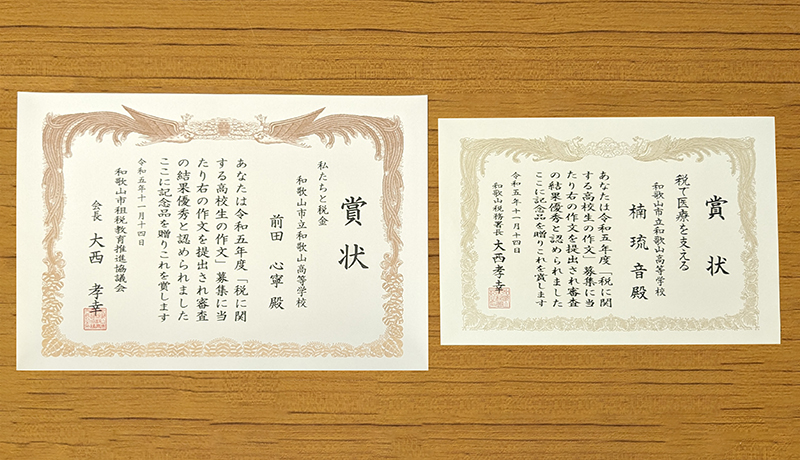 賞状
私たちと税金
和歌山市立和歌山高等学校
前田 心寧 殿
あなたは令和五年度「税に関
する高校生の作文」募集に当
たり右の作文を提出され審査
の結果優秀と認められました
ここに記念品を贈りこれを賞します
令和五年十一月十四日
和歌山市租税教育推進協議会
会長 大西 孝幸
賞状
税で医療を支える
和歌山市立和歌山高等学校
楠 琉音 殿
あなたは令和五年度「税に関
する高校生の作文」募集に当
たり右の作文を提出され審査
の結果優秀と認められました
ここに記念品を贈りこれを賞します
令和五年十一月十四日
和歌山税務署長 大西 孝幸